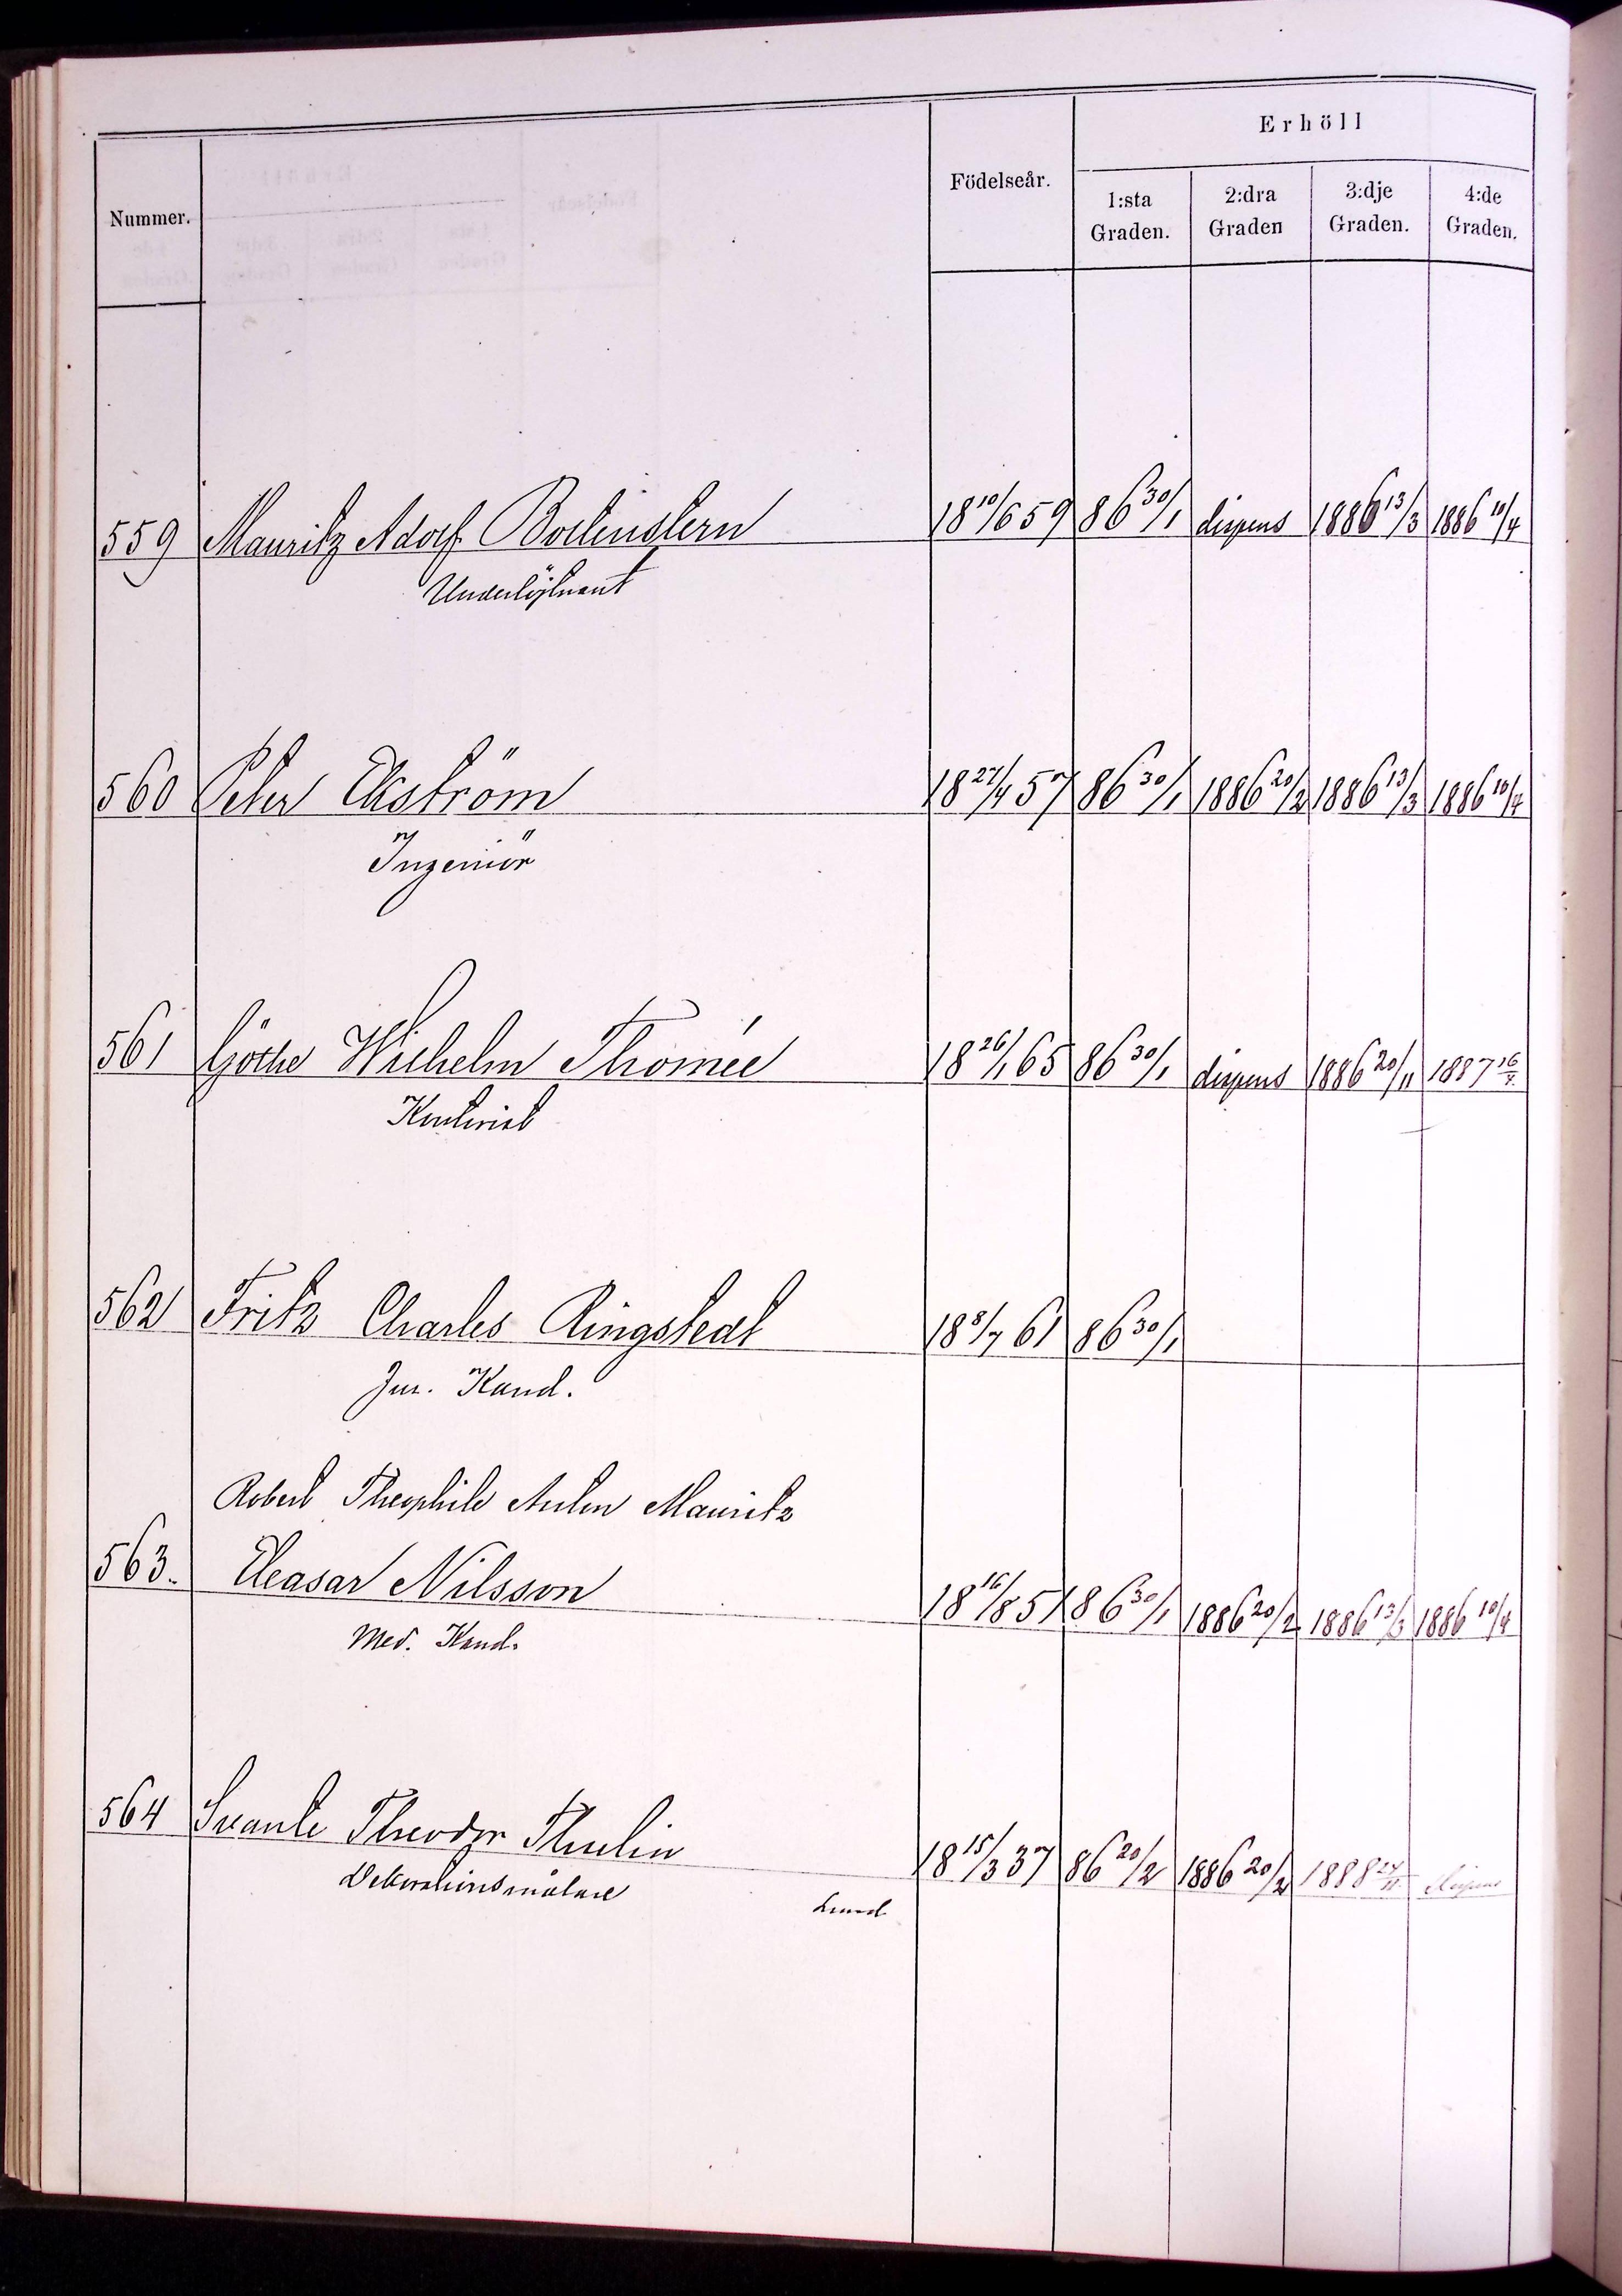 Erhöll
Nummer. Födelseår. 1:sta Graden. 2:dra Graden 3:dje Graden. 4:de Graden.
559 Mauritz Adolf Bodenstern 18 10/6 59 86 30/1 dispens 1886 13/3 1886 10/4
Underlöjtnant
560 Peter Ekström 18 27/4 57 86 30/1 1886 20/2 1886 13/3 1886 10/4
Ingeniör
561 Göthe Wilhelm Thomée 18 26/1 65 86 30/1 dispens 1886 20/11 1887 16/4
Kontorist
562 Fritz Charles Ringstedt 18 8/7 61 86 30/1
Jur. Kand.
Robert Theophile Anton Mauritz
563. Eleasar Nilsson 18 16/8 51 86 30/1 1886 20/2 1886 13/3 1886 10/4
Med. Kand.
564 Svante Theodor Thulin 18 15/3 37 86 20/2 1886 20/2 1888 24/11 dispens
Dekorationsmålare
Lund